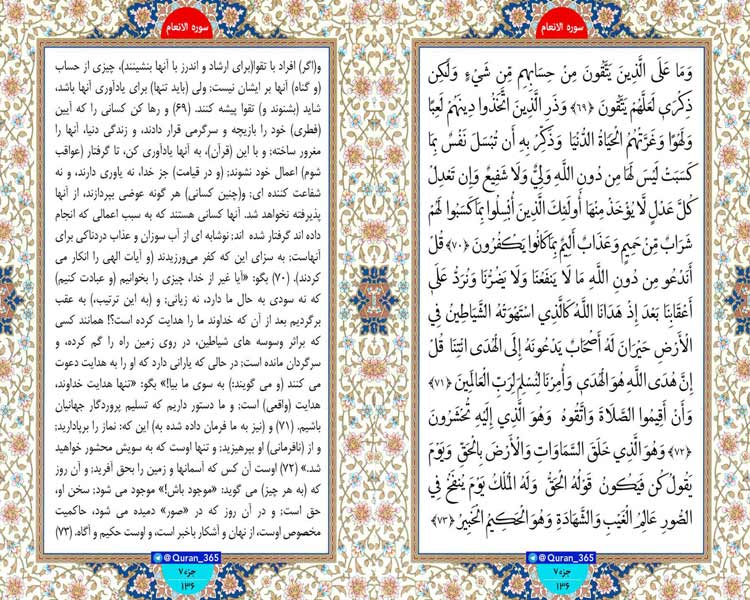 سوره الانعام
وَمَا عَلَى الَّذِينَ يَتَّقُونَ مِنْ حِسَابِهِم مِّن شَيْءٍ وَلَٰكِن
ذِكْرَىٰ لَعَلَّهُمْ يَتَّقُونَ ﴿۶۹﴾ وَذَرِ الَّذِينَ اتَّخَذُوا دِينَهُمْ لَعِبًا
وَلَهْوًا وَغَرَّتْهُمُ الْحَيَاةُ الدُّنْيَا وَذَكِّرْ بِهِ أَن تُبْسَلَ نَفْسٌ بِمَا
كَسَبَتْ لَيْسَ لَهَا مِن دُونِ اللَّهِ وَلِيٌّ وَلَا شَفِيعٌ وَإِن تَعْدِلْ
كُلَّ عَدْلٍ لَّا يُؤْخَذْ مِنْهَا أُولَٰئِكَ الَّذِينَ أُبْسِلُوا بِمَا كَسَبُوا لَهُمْ
شَرَابٌ مِّنْ حَمِيمٍ وَعَذَابٌ أَلِيمٌ بِمَا كَانُوا يَكْفُرُونَ ﴿۷۰﴾ قُلْ
أَنَدْعُو مِن دُونِ اللَّهِ مَا لَا يَنفَعُنَا وَلَا يَضُرُّنَا وَنُرَدُّ عَلَىٰ
أَعْقَابِنَا بَعْدَ إِذْ هَدَانَا اللَّهُ كَالَّذِي اسْتَهْوَتْهُ الشَّيَاطِينُ فِي
الْأَرْضِ حَيْرَانَ لَهُ أَصْحَابٌ يَدْعُونَهُ إِلَى الْهُدَى ائْتِنَا قُلْ
إِنَّ هُدَى اللَّهِ هُوَ الْهُدَىٰ وَأُمِرْنَا لِنُسْلِمَ لِرَبِّ الْعَالَمِينَ ﴿۷۱﴾
وَأَنْ أَقِيمُوا الصَّلَاةَ وَاتَّقُوهُ وَهُوَ الَّذِي إِلَيْهِ تُحْشَرُونَ
﴿۷۲﴾ وَهُوَ الَّذِي خَلَقَ السَّمَاوَاتِ وَالْأَرْضَ بِالْحَقِّ وَيَوْمَ
يَقُولُ كُن فَيَكُونُ قَوْلُهُ الْحَقُّ وَلَهُ الْمُلْكُ يَوْمَ يُنفَخُ فِي
الصُّورِ عَالِمُ الْغَيْبِ وَالشَّهَادَةِ وَهُوَ الْحَكِيمُ الْخَبِيرُ ﴿۷۳﴾
@Quran_365
جزء۷
۱۳۶
سوره الانعام
و(اگر) افراد با تقوا(برای ارشاد و اندرز با آنها بنشینند)، چیزی از حساب
(و گناه) آنها بر ایشان نیست؛ ولی (باید تنها) برای یادآوری آنها باشد،
شاید (بشنوند و) تقوا پیشه کنند. (۶۹) و رها کن کسانی را که آیین
(فطری) خود را بازیچه و سرگرمی قرار دادند، و زندگی دنیا، آنها را
مغرور ساخته؛ و با این (قرآن)، به آنها یادآوری کن، تا گرفتار (عواقب
شوم) اعمال خود نشوند؛ (و در قیامت) جز خدا، نه یاوری دارند، و نه
شفاعت کننده ای؛ و(چنین کسانی) هر گونه عوضی بپردازند، از آنها
پذیرفته نخواهد شد. آنها کسانی هستند که به سبب اعمالی که انجام
داده اند گرفتار شده اند; نوشابه ای از آب سوزان و عذاب دردناکی برای
آنهاست؛ به سزای این که کفر می‌ورزیدند (و آیات الهی را انکار می
کردند). (۷۰) بگو: «آیا غیر از خدا، چیزی را بخوانیم (و عبادت کنیم)
که نه سودی به حال ما دارد، نه زیانی; و (به این ترتیب)، به عقب
برگردیم بعد از آن که خداوند ما را هدایت کرده است؟! همانند کسی
که براثر وسوسه های شیاطین، در روی زمین راه را گم کرده، و
سرگردان مانده است؛ در حالی که یارانی دارد که او را به هدایت دعوت
می کنند (و می گویند:) به سوی ما بیا!» بگو: «تنها هدایت خداوند،
هدایت (واقعی) است؛ و ما دستور داریم که تسلیم پروردگار جهانیان
باشیم. (۷۱) و (نیز به ما فرمان داده شده به) این که: نماز را برپادارید;
و از (نافرمانی) او بپرهیزید; و تنها اوست که به سویش محشور خواهید
شد.» (۷۲) اوست آن کس که آسمانها و زمین را بحق آفرید; و آن روز
که (به هر چیز) می گوید: «موجود باش!» موجود می شود; سخن او،
حق است؛ و در آن روز که در «صور» دمیده می شود، حاکمیت
مخصوص اوست، از نهان و آشکار باخبر است، و اوست حکیم و آگاه. (۷۳)
@Quran_365
جزء۷
۱۳۶